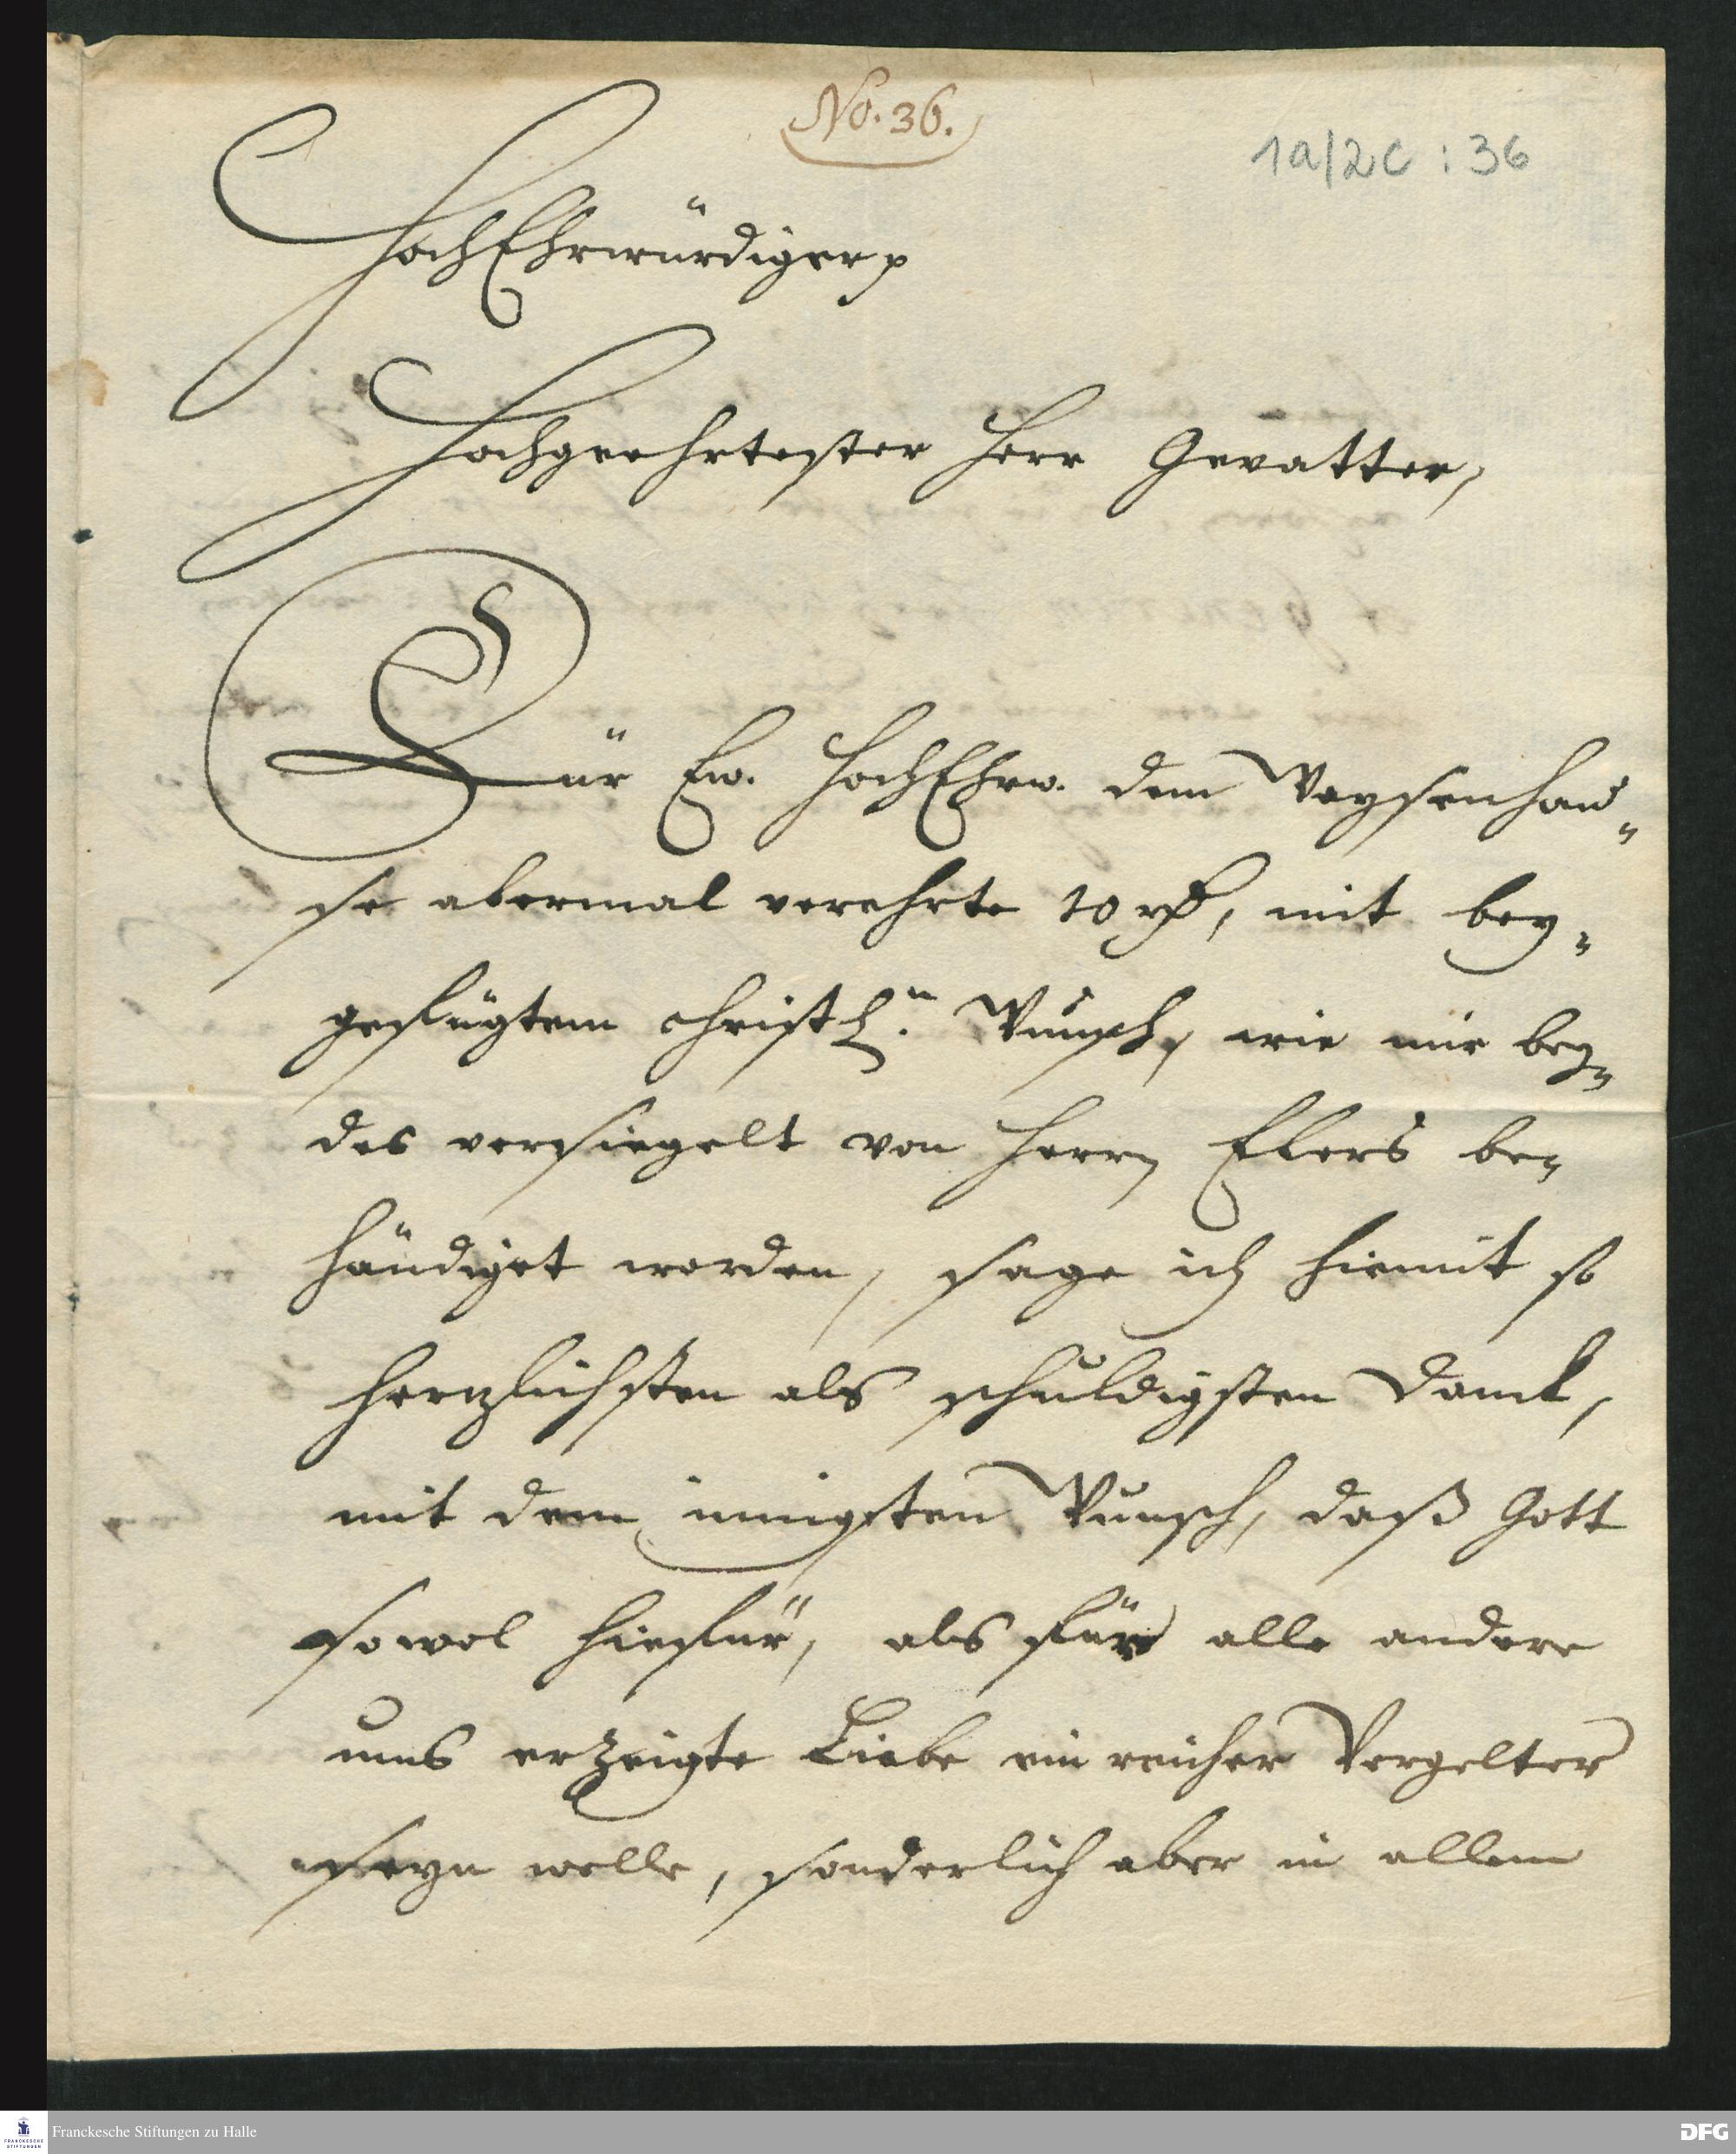 No. 36.
1a/2c : 36
HochEhrwürdiger p
Hochgeehrtester Herr Gevatter,
Für Ew. HochEhrw. dem Waysenhau=
se abermal verehrte 10 rt, mit bey=
gefügtem christl.n Wunsch, wie mir bey=
des versiegelt von Herrn Elers be=
händiget worden, sage ich hiemit so
hertzlichsten als schuldigsten Danck,
mit dem innigsten Wunsch, daß Gott
sowol hiefür, als für alle andere
uns erzeigte Liebe ein reicher Vergelter
seyn wolle, sonderlich aber in allem
FRANCKESCHE
STIFTUNGEN
Franckesche Stiftungen zu Halle
DFG